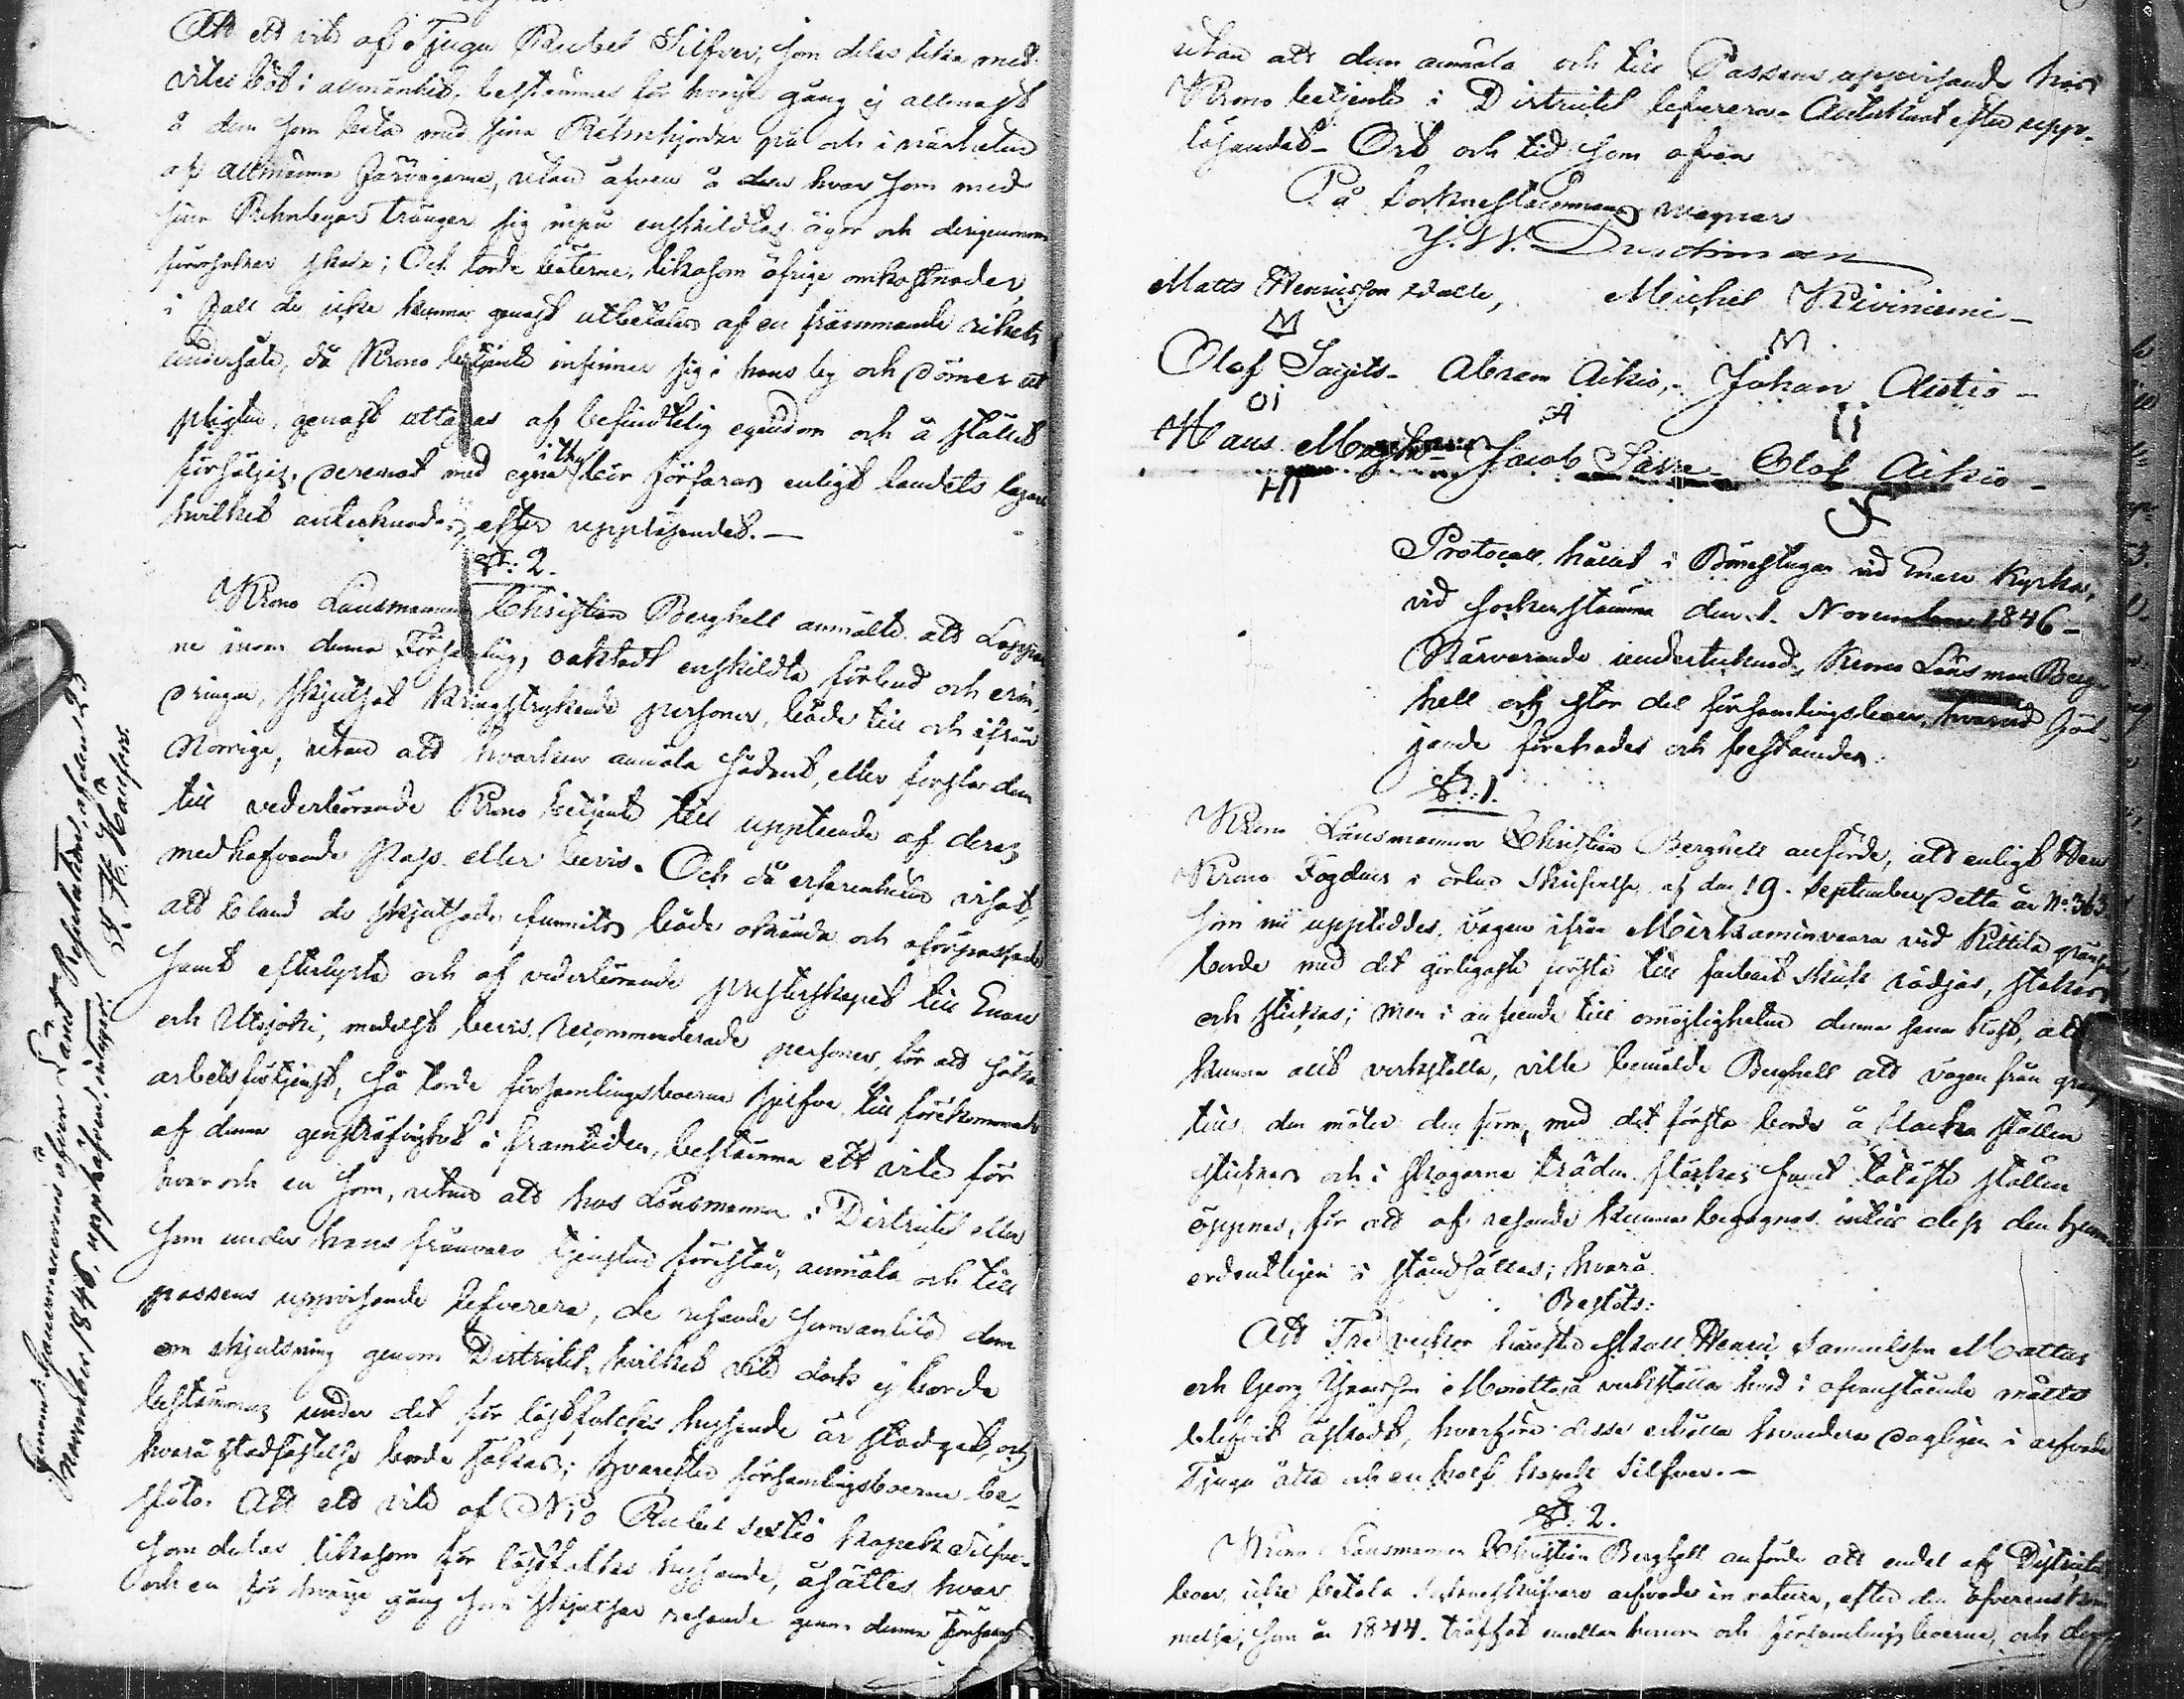 Att ett vite af Tjugu Rubel Silfver, som delas lika med
vites böt i allmänhet, bestämmes för hvarje gång ej allenast
å den som beta med sina Rehnhjordar på och i närheten
af allmänna farvägarne, utan äfven å den hvar som med
sina Rehnbyar tränger sig inpå enskildtas ägor och derigenom
förorsakar skada; Och torde böterne, likasom öfrige omkostnader,
i fall de icke kunna genast utbetalas af en främmande rikets
undersåte, då Krono betjente infinner sig i hans by och dömer ut
pligten, genast uttagas af befintelig egendom och å stället
försäljas, deremot med egna i thy här förfaras enligt landets lagar
hvilket antecknades efter uppläsandet. —
§: 2.
Krono Länsmannen Christian Berghell anmälte att Lappar
ne inom denna Församling, oaktadt enskildta förbud och erin¬
dringar, skjutsat kringstrykande personer, både till och ifrån
Norrige, utan att hvarken anmäla sådant, eller forslar dem
till vederbörande Krono betjente till uppteende af deras
medhafvande pass eller bevis. Och då erfarenheten visat,
att bland de skjutsade funnits både okände och oförpassade
samt efterlysta och af vederbörande presterskapet till Enare
och Utsjoki, medelst bevis recommenderade personer, för att söka
arbetsförtjenst, så torde församlingsboerne sjelfve till förekommande
af denna genstrafvighet i framtiden, bestämma ett vite för
hvar och en som, utan att hos Länsmannen i Distriktet eller
som under hans frånvaro tjensten förestår, anmäla och till
passens uppvisande lefverera, de resande som anlitad dem
om skjutsning genom Distriktet, hvilket vite dock ej borde
bestämmas under det för löskfolckes hysande är stadgat, och
hvarå stadfästelse borde sökas; Hvarefter församlingsboerne be¬
slöto. Att ett vite af Nio Rubel sextio kopek Silfver
som delas likasom för löskfolkes hysande, åsättes hvar
och en för hvarje gång som skjutsar resande genom denna Församl
Genom Gouverneurens öfver Länet Resolution, af den 25
November 1846, upphäfvens intaget.
utan att dem anmäla och till Passens uppvisande hos
Krono betjente i Distriktet lefverera. Antecknat efter upp¬
läsandet. Ort och tid som ofvan
På Socknestämmans vägnar
J. W. Durchman
Matts Henricsson Walle, Michel Kiviniemi —
Olof Saijets — Abram Aikio, — Johan Aikio —
Hans Jacob Olof Aikio —
Protocoll hållet i Bönestugan vid Enare kyrka,
vid sockenstämma den 1. November 1846 —
Närvarande undertecknad, Krono Länsman Berg¬
hell och stor del församlingsboer, hvarvid föl¬
jande förehades och bestämdes:
§: 1.
Krono Länsmannen Christian Berghell anförde, att enligt Herr
Krono Fogdens i orten skrifvelse af den 19. September detta år No. 363
som nu uppteddes, vägen ifrån Mirhaminvaara vid Kittilä gränsen
borde med det görligaste första till farbart skick rödjas, stakas
och stickas; men i anseende till omöjligheten denna sena höst, att
kunna allt verkställa, ville bemälde Berghell att vägen från gräns
tills den möter den förra, med det första borde å slacka ställen
stickas och i skogarne träden fläckas samt tätaste ställen
öppnas, för att af resande kunna begagnas intill dess den kan
ordentligen i ståndsättas; hvarå
Beslöts:
Att Tre veckor härefter skall Henric Samuelsson Mattus
och Georg Yrjänsson i Morottaja verkställa hvad i ofvanstående måtto
blifvit åstadt, hvarföre desse erhålla hvardera dagligen i arfvode
Tjugu åtta och en half kopek Silfver. —
§: 2.
Krono Länsmannen Christian Berghell anförde att endel af Distrikts
boer, icke betala Sockneskrifvare arfvode in natura, efter den öfverenskom
melse, som år 1844. träffat emellan honom och församlingsboerne, och